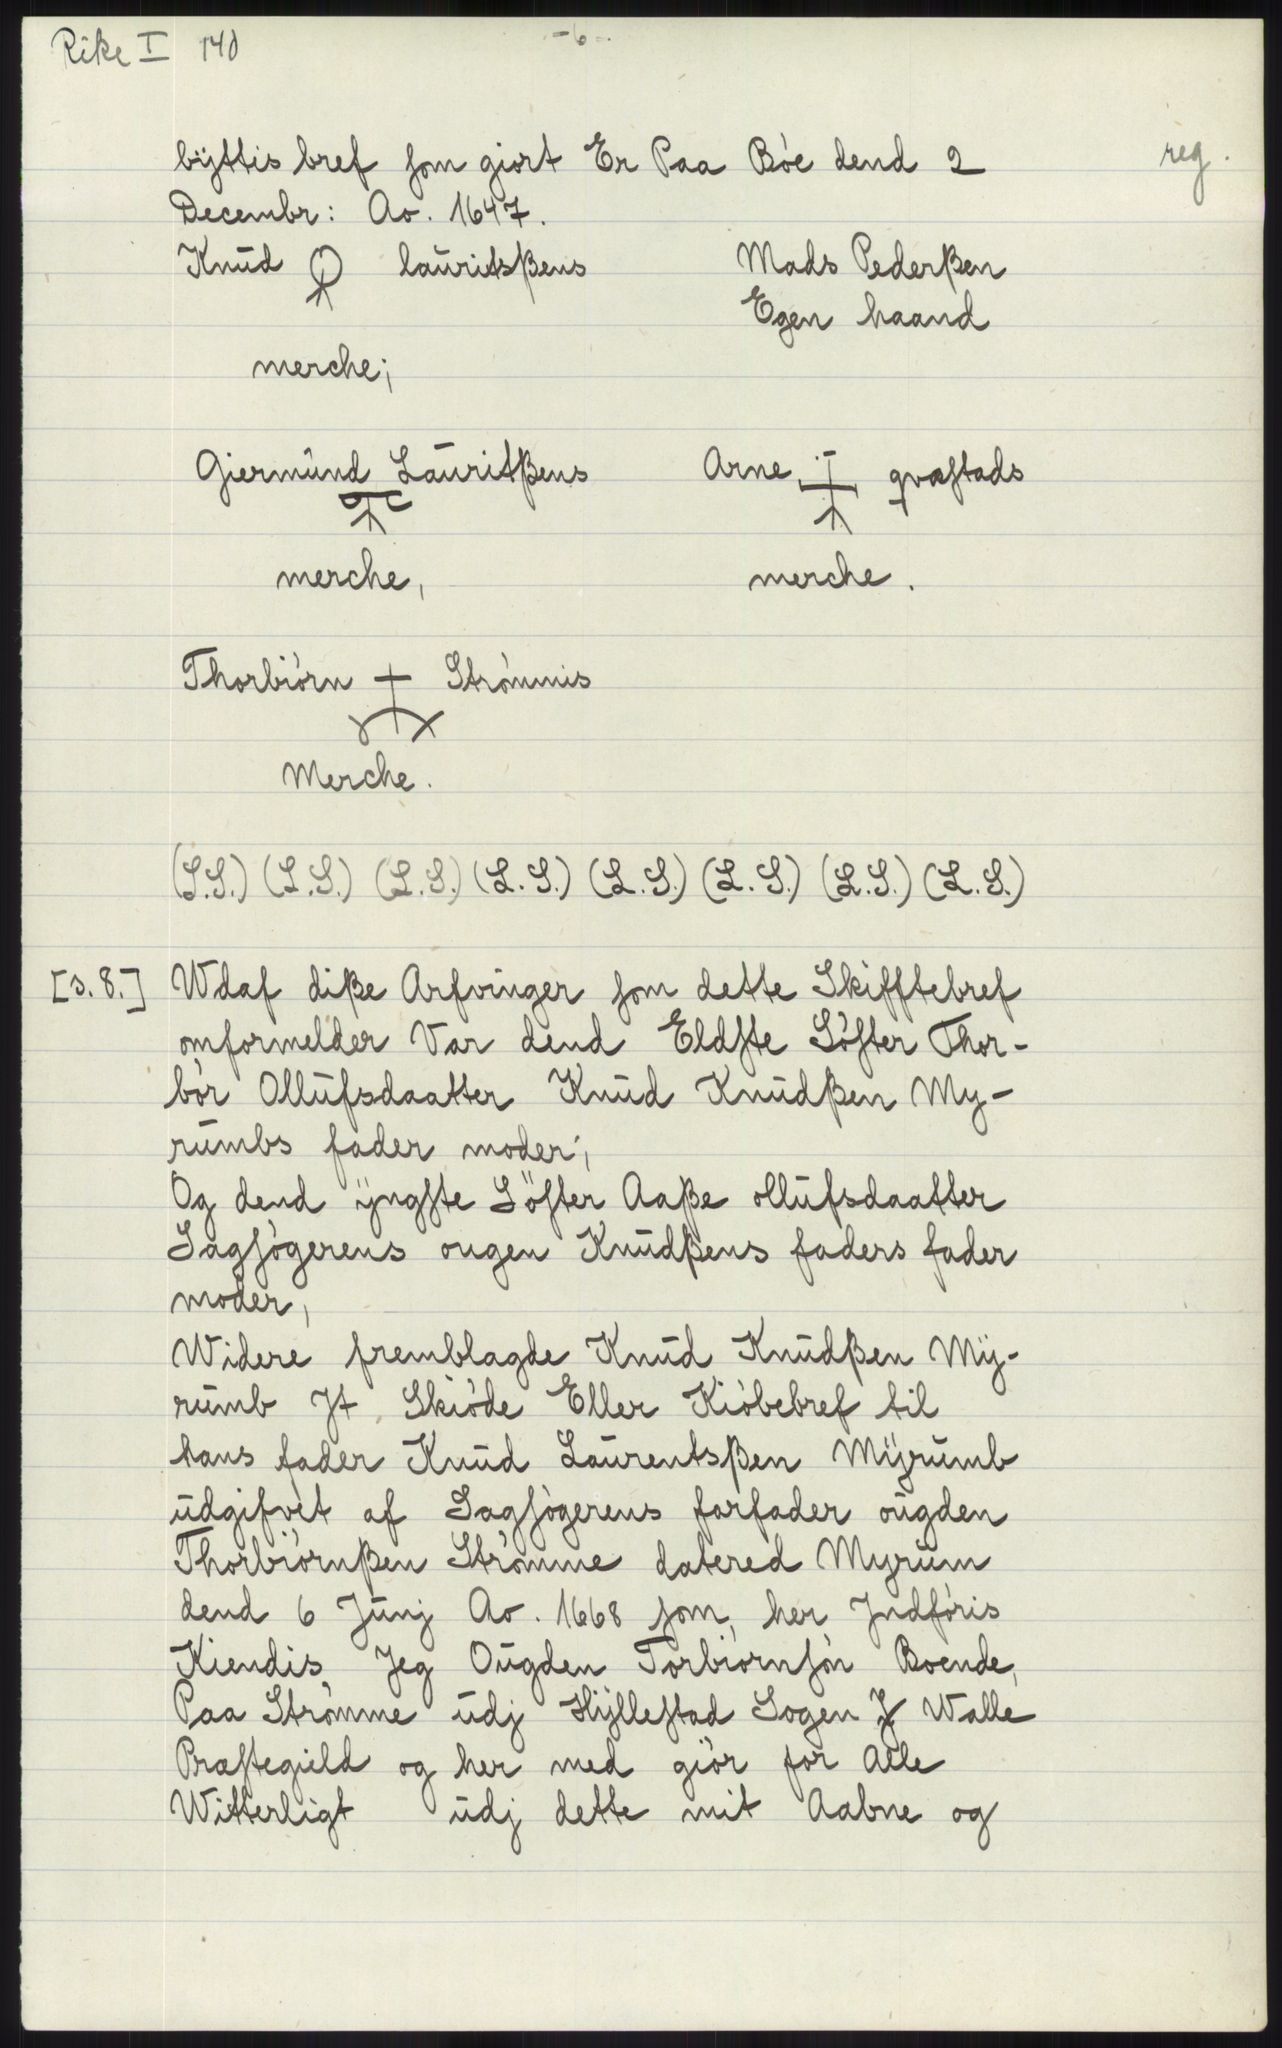 Rike I 140 -6-
reg.
bÿttis bref som giort Er Paa Bóe dend 2
Decembr: Ao. 1647.
Knud lauritsßens Mads Pederßen
Egen haand
merche;
Giermund Lauritßens Arne qvæstads
merche, merche.
Thorbiórn Strómmis
Merche.
(L.S.) (L.S.) (L.S.) (L.S.) (L.S.) (L.S.) (L.S.) (L.S.)
[s. 8.] Wdaf diße Arfvinger som dette Skifftebref
omformelder Var dend Eldste Sóster Thor-
bór Ollufsdaatter Knud Knudßen My-
rumbs fader moder;
Og dend ÿngste Söster Aaße ollufsdaatter
Sagsógerens ougen Knudßens faders fader
moder,
Widere fremblagde Knud Knudßen Mÿ-
rumb Jt Skióde Eller Kióbebref til
hans fader Knud Laurentsßen Mÿrumb
udgifvet af Sagsógerens farfader ougden
Thorbiórnßen Strómme datered Myrum
dend 6 Junj Ao. 1668 som her Jndfóris
Kiendis Jeg Ougden Torbiórnsón Boende,
Paa Strómme udj Hÿllestad Sogen J Walle
Præstegield og her med giór for Alle
Witterligt udj dette mit Aabne og